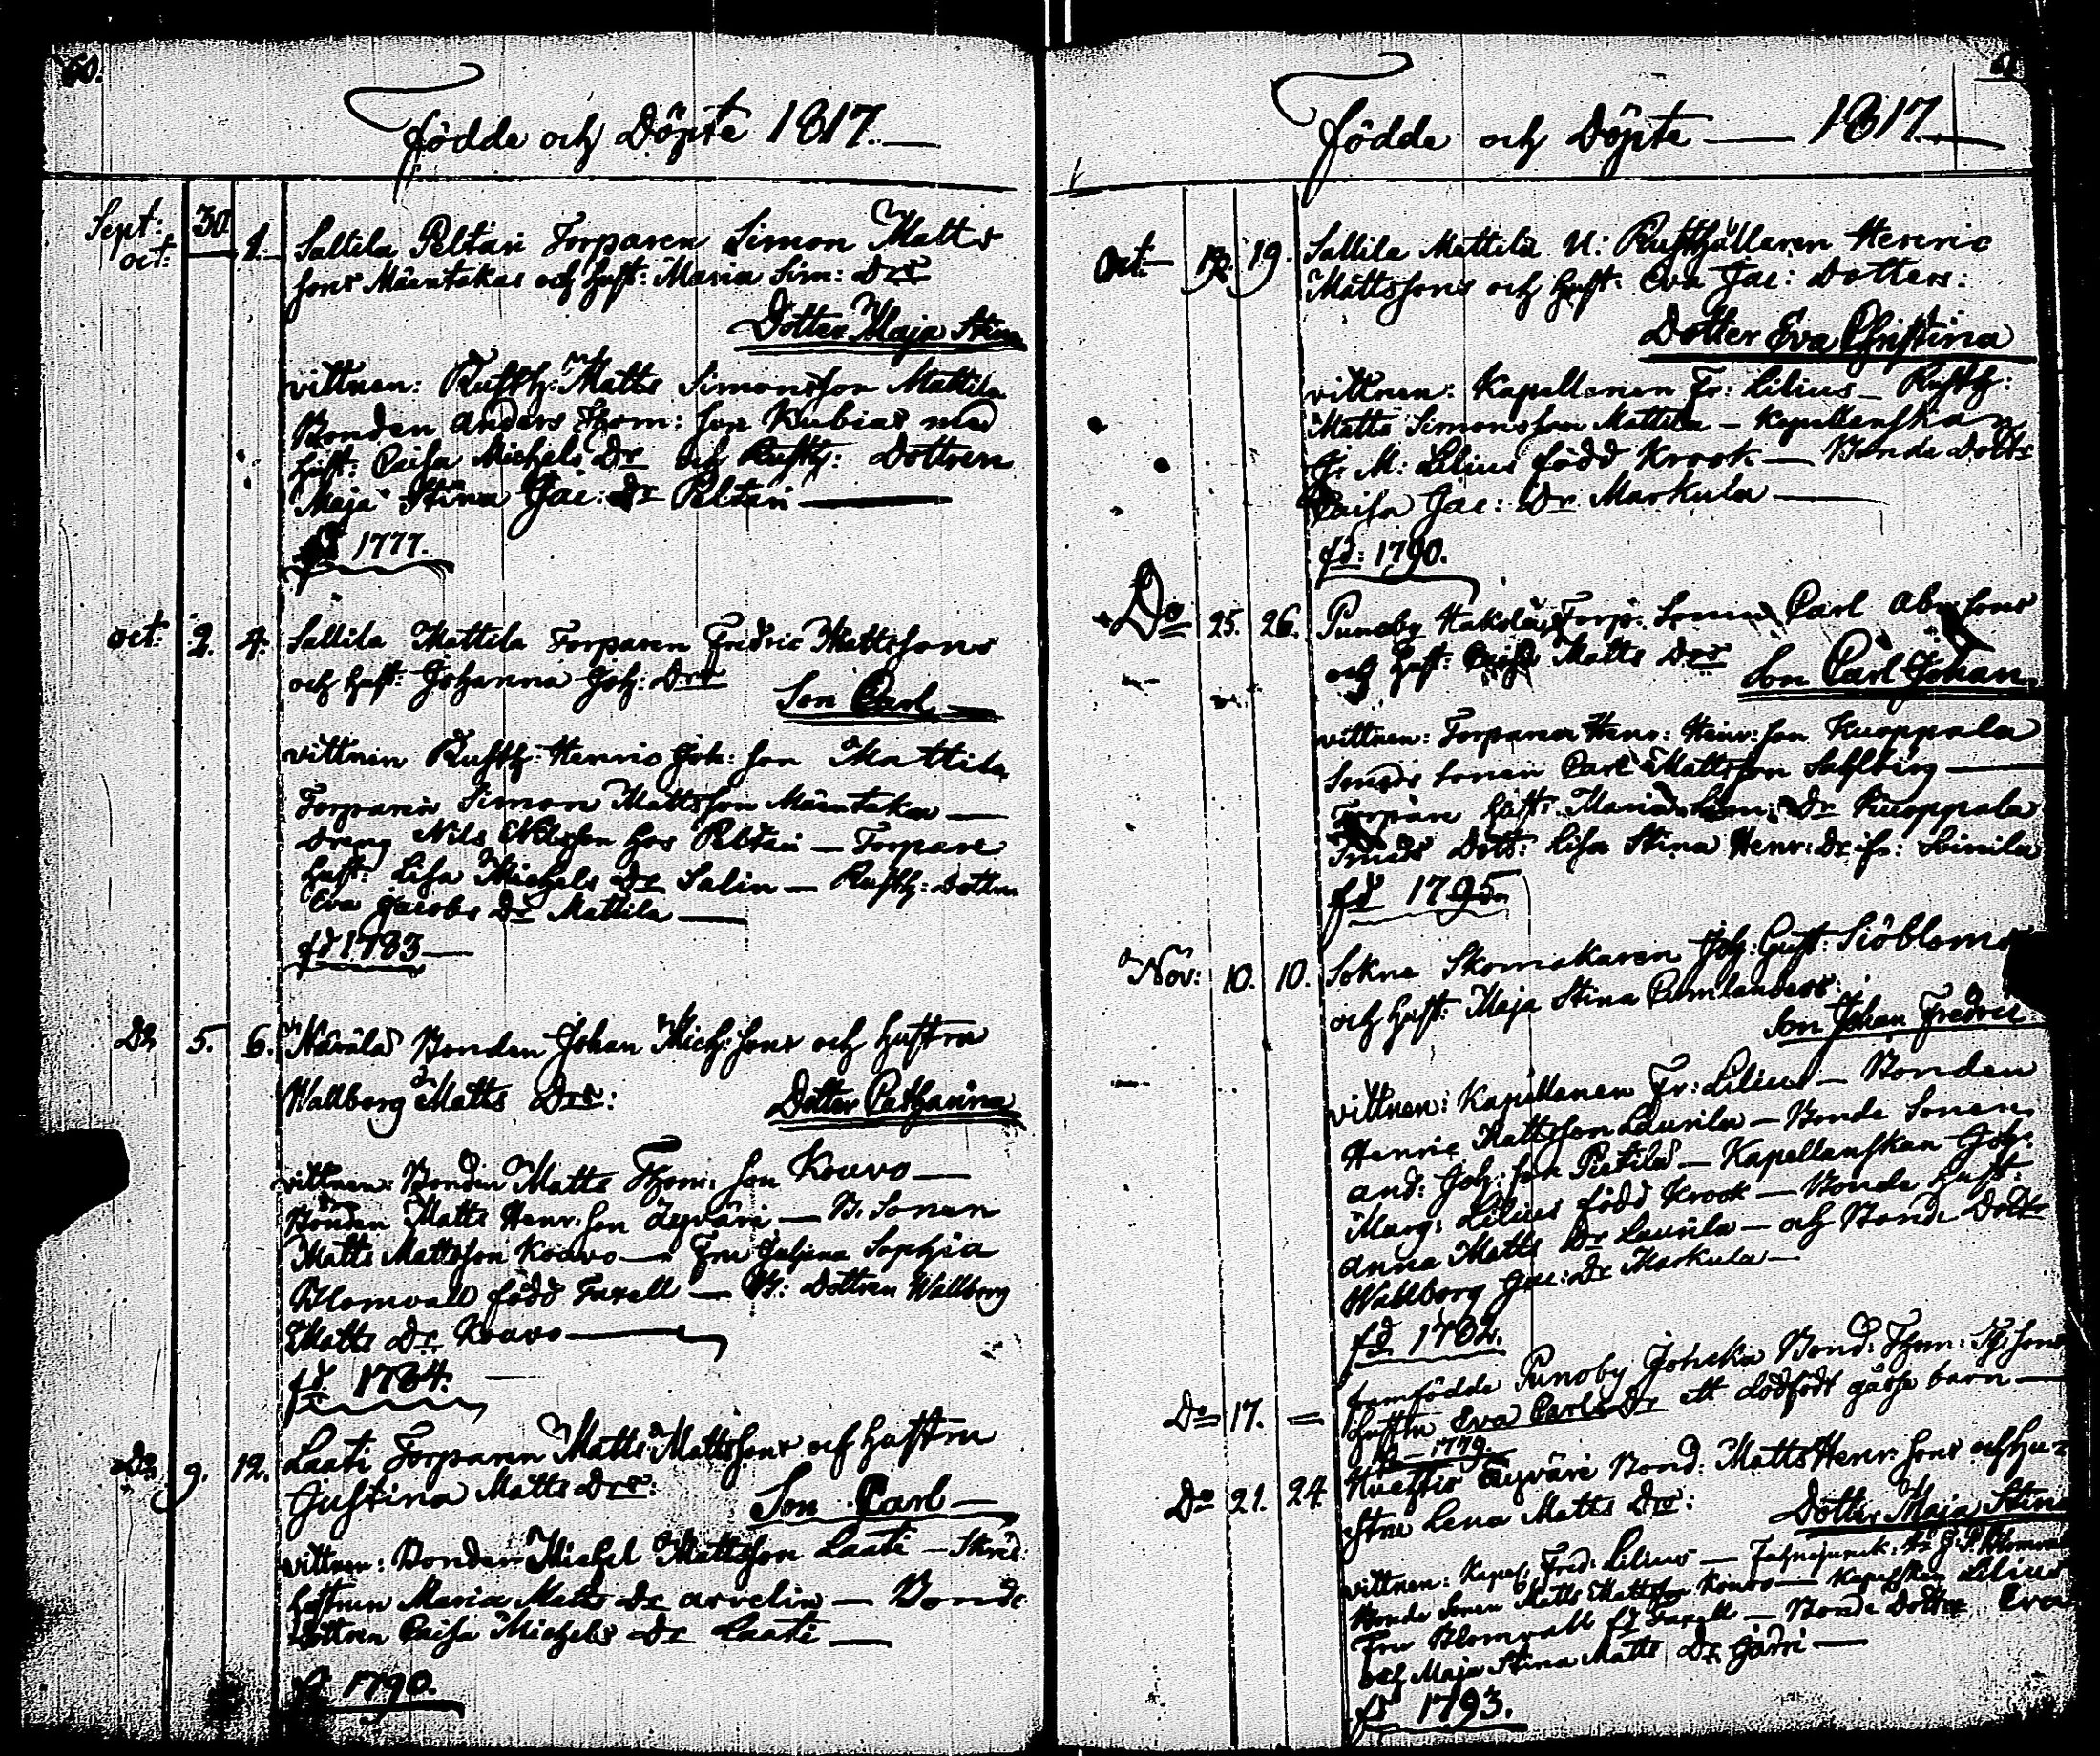 60.
Födde och Döpte 1817.
Sept: 30.
oct: 1. Sallila Peltari Torparen Simon Matts
sons Mäentakas och hust: Maria Sim: Drs
Dotter Maja Stina
vittnen: Rusth: Matts Simonsson Mattila
Bonden Anders Thom: son Kubias med
hust: Caisa Michels Dr och Rusth: Dottren
Maja Stina Jac: Dr Peltari
fd 1777.
oct: 2. 4. Sallila Mattila Torparen Fredric Mattssons
och hust: Johanna Joh: Drs
Son Carl
vittnen Rusth: Henric Joh: son Mattila
Torparen Simon Mattsson Mäentaka
Dreng Nils Nilsson hos Peltari — Torpare
hust: Lisa Michels Dr Salin — Rusth: Dottn.
Eva Jacobs Dr Mattila
fd 1783
Do 5. 6. Bonden Johan Mich: sons och hustru
Wallborg Matts Drs:
Dotter Catharina
vittnen: Bonden Matts Thom: son Kouvo
Bonden Matts Henr: son Äyväri — B. Sonen
Matts Mattsson Kouvo — Fru Juliana Sophia
Blomvall född Farell — B: Dottren Wallborg
Matts Dr Kouvo
fd 1784.
Do 9. 12. Laati Torparen Matts Mattssons och hustru
Justina Matts Drs:
Son Carl
vittnen: Bonden Michel Mattsson Laati — Skred:
hustrun Maria Matts Dr Arvelin — Bonde
Dottren Caisa Michels Dr Laati
fd 1790.
61
Födde och Döpte — 1817.
Oct: 19. Sallila Mattila N: Rusthållaren Henric
Mattssons och hust: Eva Jac: Dotters:
Dotter Eva Christina
vittnen: Kapellanen Fr: Lilius — Rusth:
Matts Simonsson Mattila — Kapellanskan
M: Lilius född Krook — Bonde Dottr
Caisa Jac: Dr Markula
fd: 1790.
Do 25. 26. Punoby Hakola Torp: Sonen Carl Abr: sons
och hust: Caisa Matts Drs
Son Carl Johan
vittnen: Torparen Henr: Henr: son Kuoppala
Smeds Sonen Carl Mattsson Sahlberg
Torpare hust: Maria Dr Kuoppala
Smeds Dott: Lisa Stina Henr: Dr
fd 1795.
Nov: 10. 10. Sokne Skomakaren Joh: Gust: Siöbloms
och hust: Maja Stina Cumlanders:
Son Johan Fredric
vittnen: Kapellanen Fr: Lilius — Bonden
Henric Mattsson Laurila — Bonde Sonen
And: Joh: son Pietilä — Kapellanskan Joh:
Marg: Lilius född Krook — Bonde hust:
Anna Matts Dr Laurila — och Bonde Dottr
Wahlborg Jac: Dr Markula
fd 1782.
Do 17. — framfödde Punoby Bond: Thom: Th: sons
hustru Eva Carls Dr ett dödfödt gåsse barn
fd 1779.
Do 21. 24. Äyväri Bond: Matts Henr: sons och hu-
stru Lena Matts Drs:
Dotter Maja Stina
vittnen: Kapel: Fred: Lilius — Blomvall
Bonde Sonen Matts Mattson Kouvo — Lilius
Fru Blomvall fd Farell — Bonde Dottr Eva
och Maja Stina Matts Dr
fd 1793.